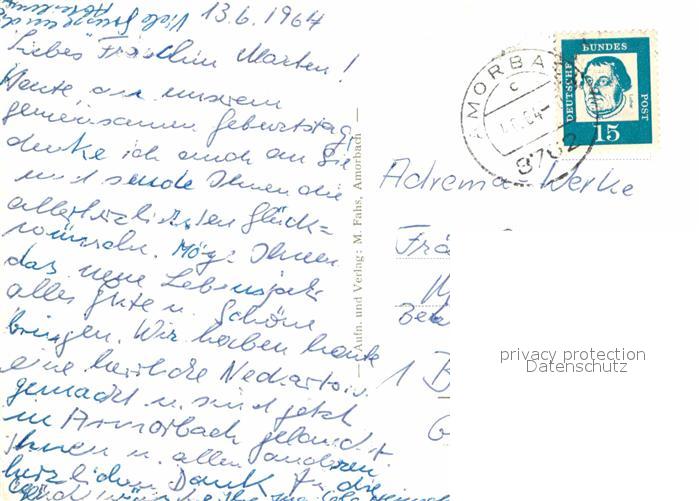 13.6.1964
Viele Grüße
Liebes Fräulein Marten!
Heute an unserem
gemeinsamen Geburtstag,
denke ich auch an Sie
und sende Ihnen die
allerherzlichsten Glück=
wünsche. Möge Ihnen
das neue Lebensjahr
alles Gute u. Schöne
bringen. Wir haben heute
eine herrliche Neckartour
gemacht u. sind jetzt
in Amorbach gelandet
Ihnen u. allen anderen
herzlichen Dank für die
Aufn. und Verlag: M. Fahs, Amorbach
AMORBACH
c
8762
DEUTSCHE BUNDESPOST
Luther
15
Adrema Werke
1 B
privacy protection
Datenschutz